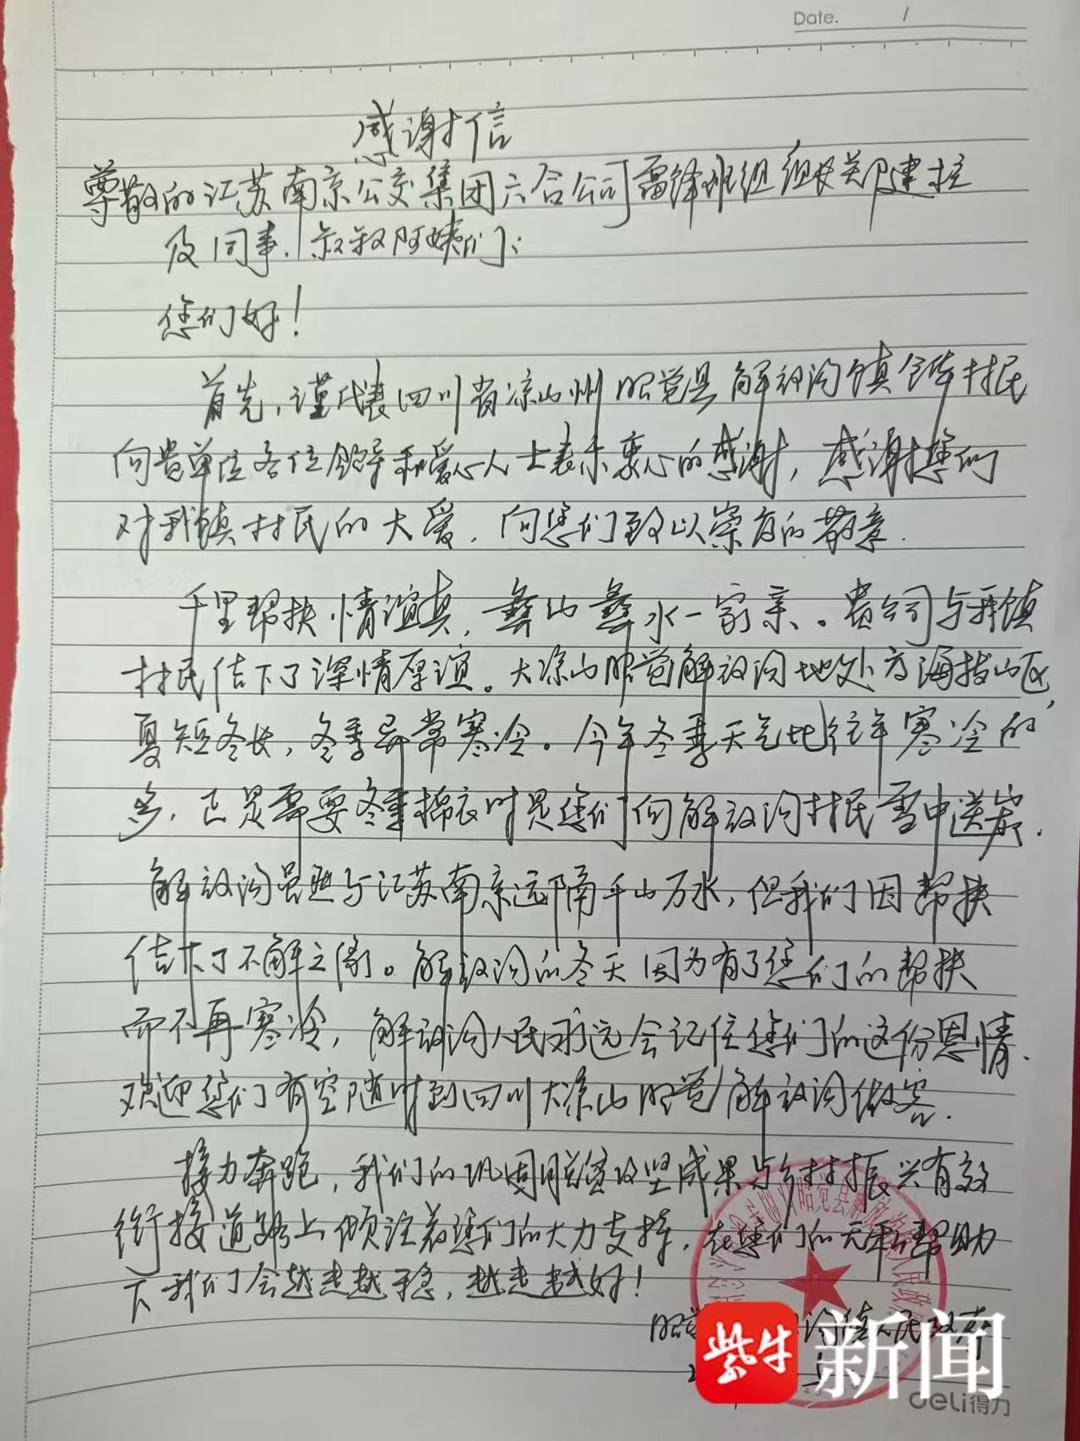 Date. /
感谢信
尊敬的江苏南京公交集团六合公司雷锋班组组长郑建
及同事、叔叔阿姨们:
您们好!
首先,谨代表四川省凉山州昭觉县解放沟镇全体村民
向贵单位各位领导和爱心人士表示衷心的感谢,感谢您们
对我镇村民的大爱,向您们致以崇高的敬意.
千里帮扶情谊真,彝山彝水一家亲。贵公司与我镇
村民结下了深情厚谊。大凉山昭觉解放沟地处高海拔山区,
夏短冬长,冬季异常寒冷。今年冬季天气比往年寒冷的
多,正是需要冬季棉衣时是您们向解放沟村民雪中送炭.
解放沟虽然与江苏南京远隔千山万水,但我们因帮扶
结下了不解之缘。解放沟的冬天因为有了您们的帮扶
而不再寒冷,解放沟人民永远会记住您们的这份恩情.
欢迎您们有空随时到四川大凉山昭觉解放沟做客.
接力奔跑,我们的巩固脱贫攻坚成果与乡村振兴有效
衔接道路上倾注着您们的大力支持,在您们的无私帮助
下我们会越走越稳,越走越好!
昭觉 沟镇人民政府
紫牛新闻
deli得力